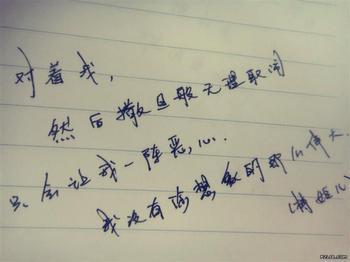 对着我，
然后撒旦般无理取闹
只会让我一阵恶心．
我没有你想象的那么伟大．